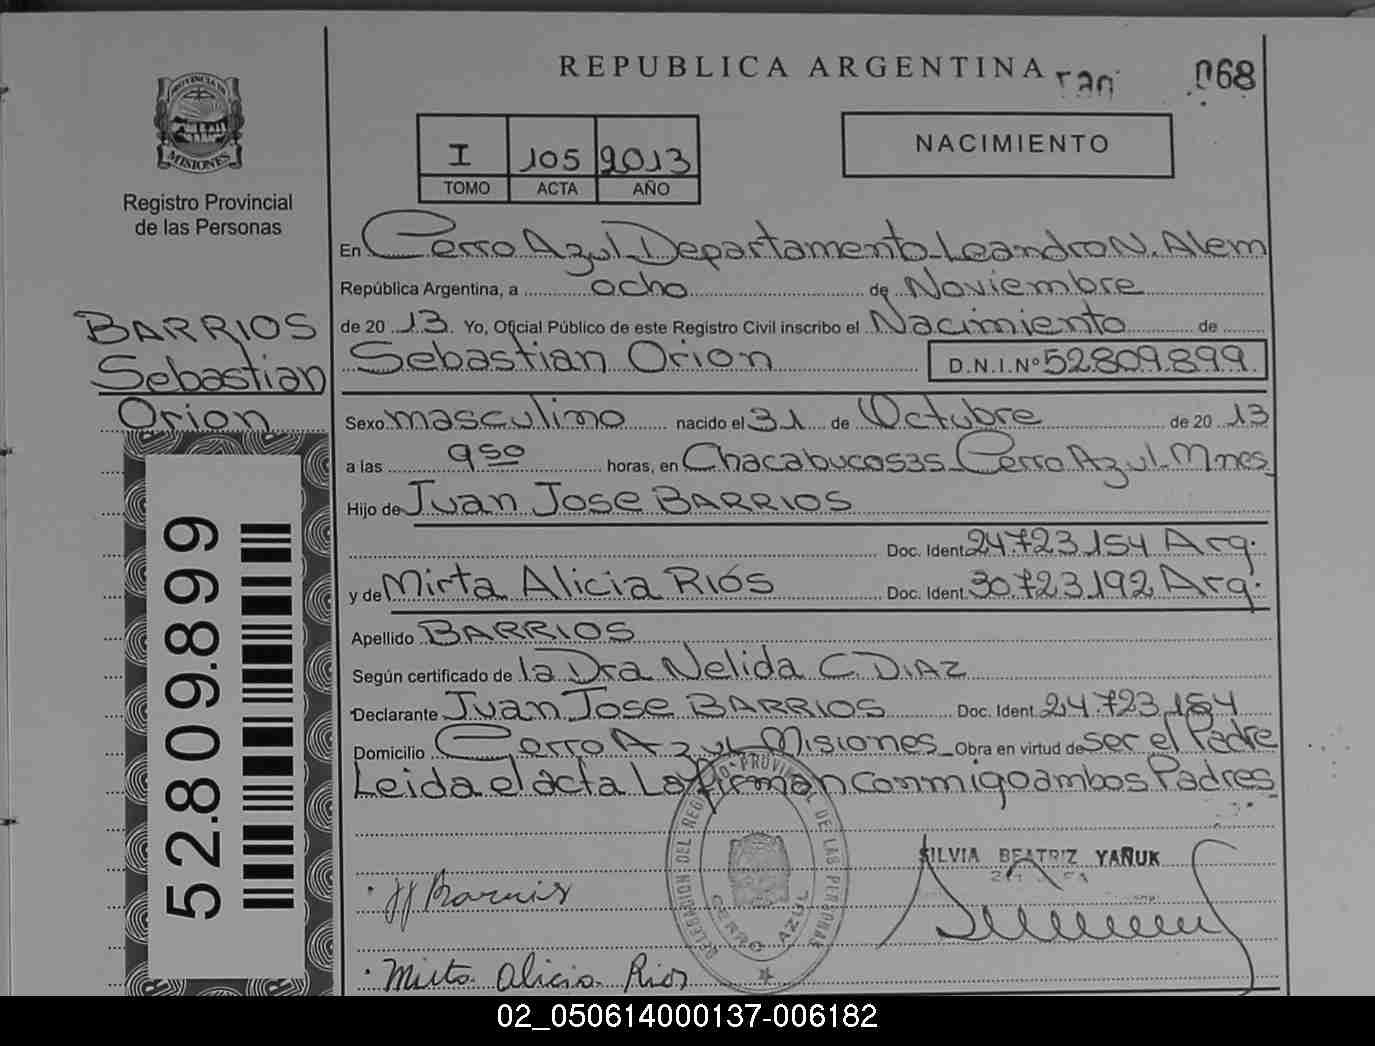 REPUBLICA ARGENTINA
068
PROVINCIA DE
MISIONES
Registro Provincial
de las Personas
I 105 2013
TOMO ACTA AÑO
NACIMIENTO
En Cerro Azul Departamento Leandro N. Alem
República Argentina, a ocho de Noviembre
de 20 13. Yo, Oficial Público de este Registro Civil inscribo el Nacimiento de
Sebastian Orion D.N.I.Nº 52.809.899
BARRIOS
Sebastian
Orion
52.809.899
Sexo masculino nacido el 31 de Octubre de 20 13
a las 9 50 horas, en Chacabuco 535 Cerro Azul Mnes
Hijo de Juan Jose BARRIOS
Doc. Ident. 24.723.154 Arg.
y de Mirta Alicia Riós Doc. Ident. 30.723.192 Arg.
Apellido BARRIOS
Según certificado de la Dra Nelida C. DIAZ
Declarante Juan Jose BARRIOS Doc. Ident. 24.723.154
Domicilio Cerro Azul Misiones Obra en virtud de ser el Padre
Leida el acta La firman conmigo ambos Padres
DELEGACION DEL REGISTRO PROVINCIAL DE LAS PERSONAS
CERRO AZUL
SILVIA BEATRIZ YAÑUK
JJ Barrios
Mirta Alicia Rios
02_050614000137-006182